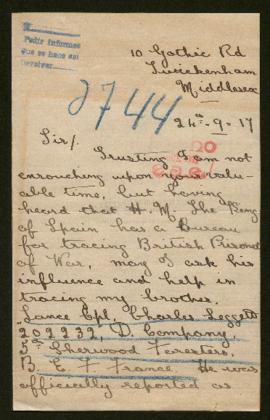 Pedir informes
que se hace así
10 Gothic Rd
Twickenham
Middlesex
2744
24th-9-17
Sir/.
Trusting I am not
enrouching upon your valu-
able time, but having
heard that H. M. The King
of Spain has a Bureau
for tracing British Prisoners
of War, may I ask his
influence and help in
tracing my brother.
Lance Cpl, Charles Leggett
202932, D. Company
5th Sherwood Foresters.
B. E. F France. He was
officially reported as